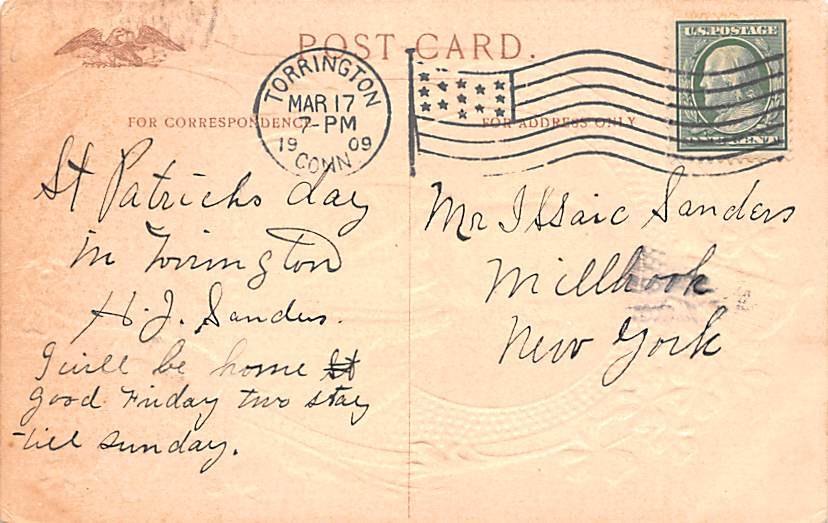 POST CARD.
TORRINGTON
MAR 17
7-PM
19 09
CONN
U.S. POSTAGE
ONE CENT
FOR CORRESPONDENCE
FOR ADDRESS ONLY
St Patricks day
in Torrington
H. J. Sanders.
I will be home St
good Friday two stay
till sunday.
Mr Issaic Sanders
Millbrook
New York